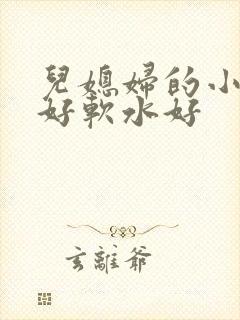 兒媳婦的小
好軟水好
玄離爺